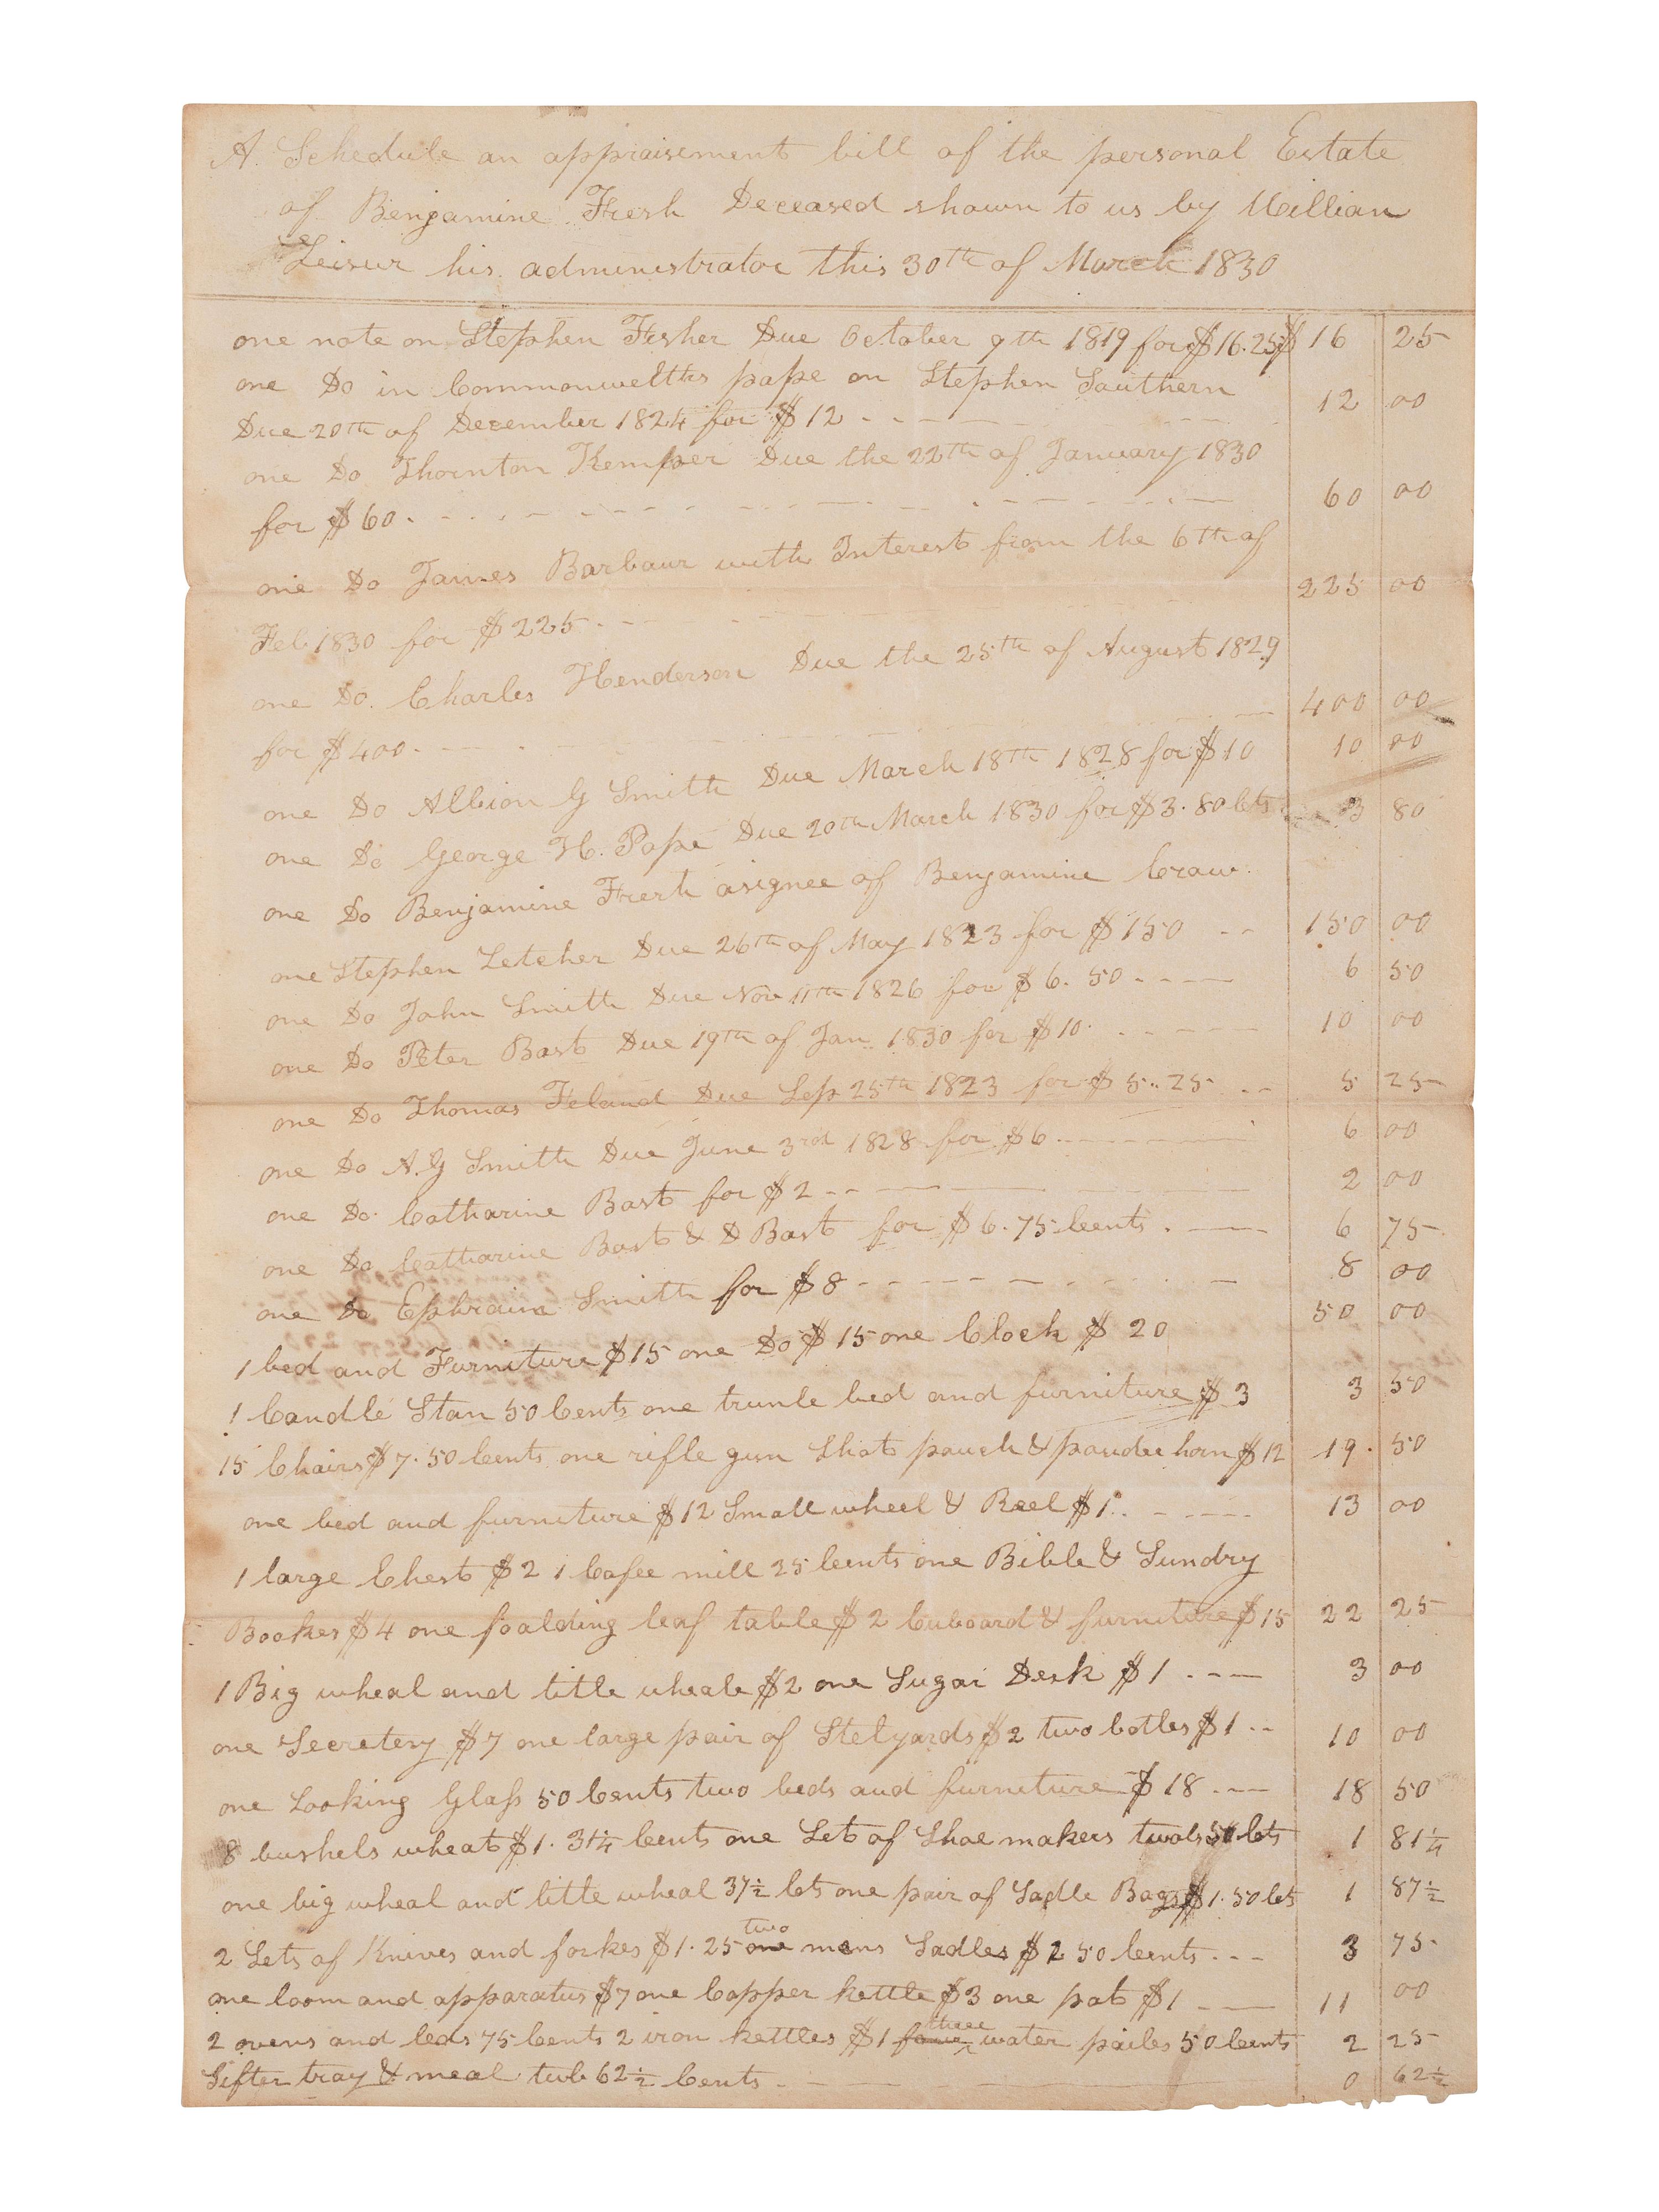 A. Schedule an appraisement bill of the personal Estate
of Benjamine Fresh Deceased shown to us by Willian
Leisur his administrator this 30th of March 1830
one note on Stephen Fisher Due October 9th 1819 for $16.25 $ 16 25
one Do in Commonwelths pape on Stephen Southern
Due 20th of December 1824 for $12 12 00
one Do Thornton Kemper Due the 22th of January 1830
for $60 60 00
one Do James Barbour with Interest from the 6th of
Feb 1830 for $225 225 00
one Do. Charles Henderson Due the 25th of August 1829
for $400 400 00
one Do Albion G Smith Due March 18th 1828 for $10 10 00
one Do George H. Pope Due 20th March 1830 for $3.80 Cts 3 80
one Do Benjamine Fresh asignee of Benjamine Craw
one Stephen Letcher Due 26th of May 1823 for $150 150 00
one Do John Smith Due Nov 11th 1826 for $6.50 6 50
one Do Peter Bast Due 19th of Jan 1830 for $10 10 00
one Do Thomas Feland Due Sep 25th 1823 for $5..25 5 25
one Do A.G Smith Due June 3rd 1828 for $6 6 00
one Do Catharine Bast for $2 2 00
one Do Catharine Bast & D Bast for $6.75 Cents 6 75
one Do Ephraim Smith for $8 8 00
1 bed and Furniture $15 one Do $15 one Clock $20 50 00
1 Candle Stan 50 Cents one trunle bed and furniture $3 3 50
15 Chairs $7.50 Cents one rifle gun Shot pouch & pouder horn $12 19.50
one bed and furniture $12 Small wheel & Reel $1 13 00
1 large Chest $2 1 Cafee mill 25 Cents one Bible & Sundry
Bookes $4 one foalding leaf table $2 Cuboard & furniture $15 22 25
1 Big wheal and little wheale $2 one Sugar Desk $1 3 00
one Secretery $7 one large pair of Stelyards $2 two botles $1 10 00
one Looking Glass 50 Cents two beds and furniture $18 18 50
8 bushels wheat $1.31¼ Cents one Set of Shoe makers twols 50 Cts 1 81¼
one big wheal and little wheal 37½ Cts one pair of Sadle Bags $1.50 Cts 1 87½
2 Sets of Knives and forkes $1.25 one two mens Sadles $2 50 Cents 3 75
one loom and apparatus $7 one Copper kettle $3 one pot $1 11 00
2 ovens and leds 75 Cents 2 iron kettles $1 four three water pailes 50 Cents 2 25
Sifter tray & meal tub 62½ Cents 0 62½